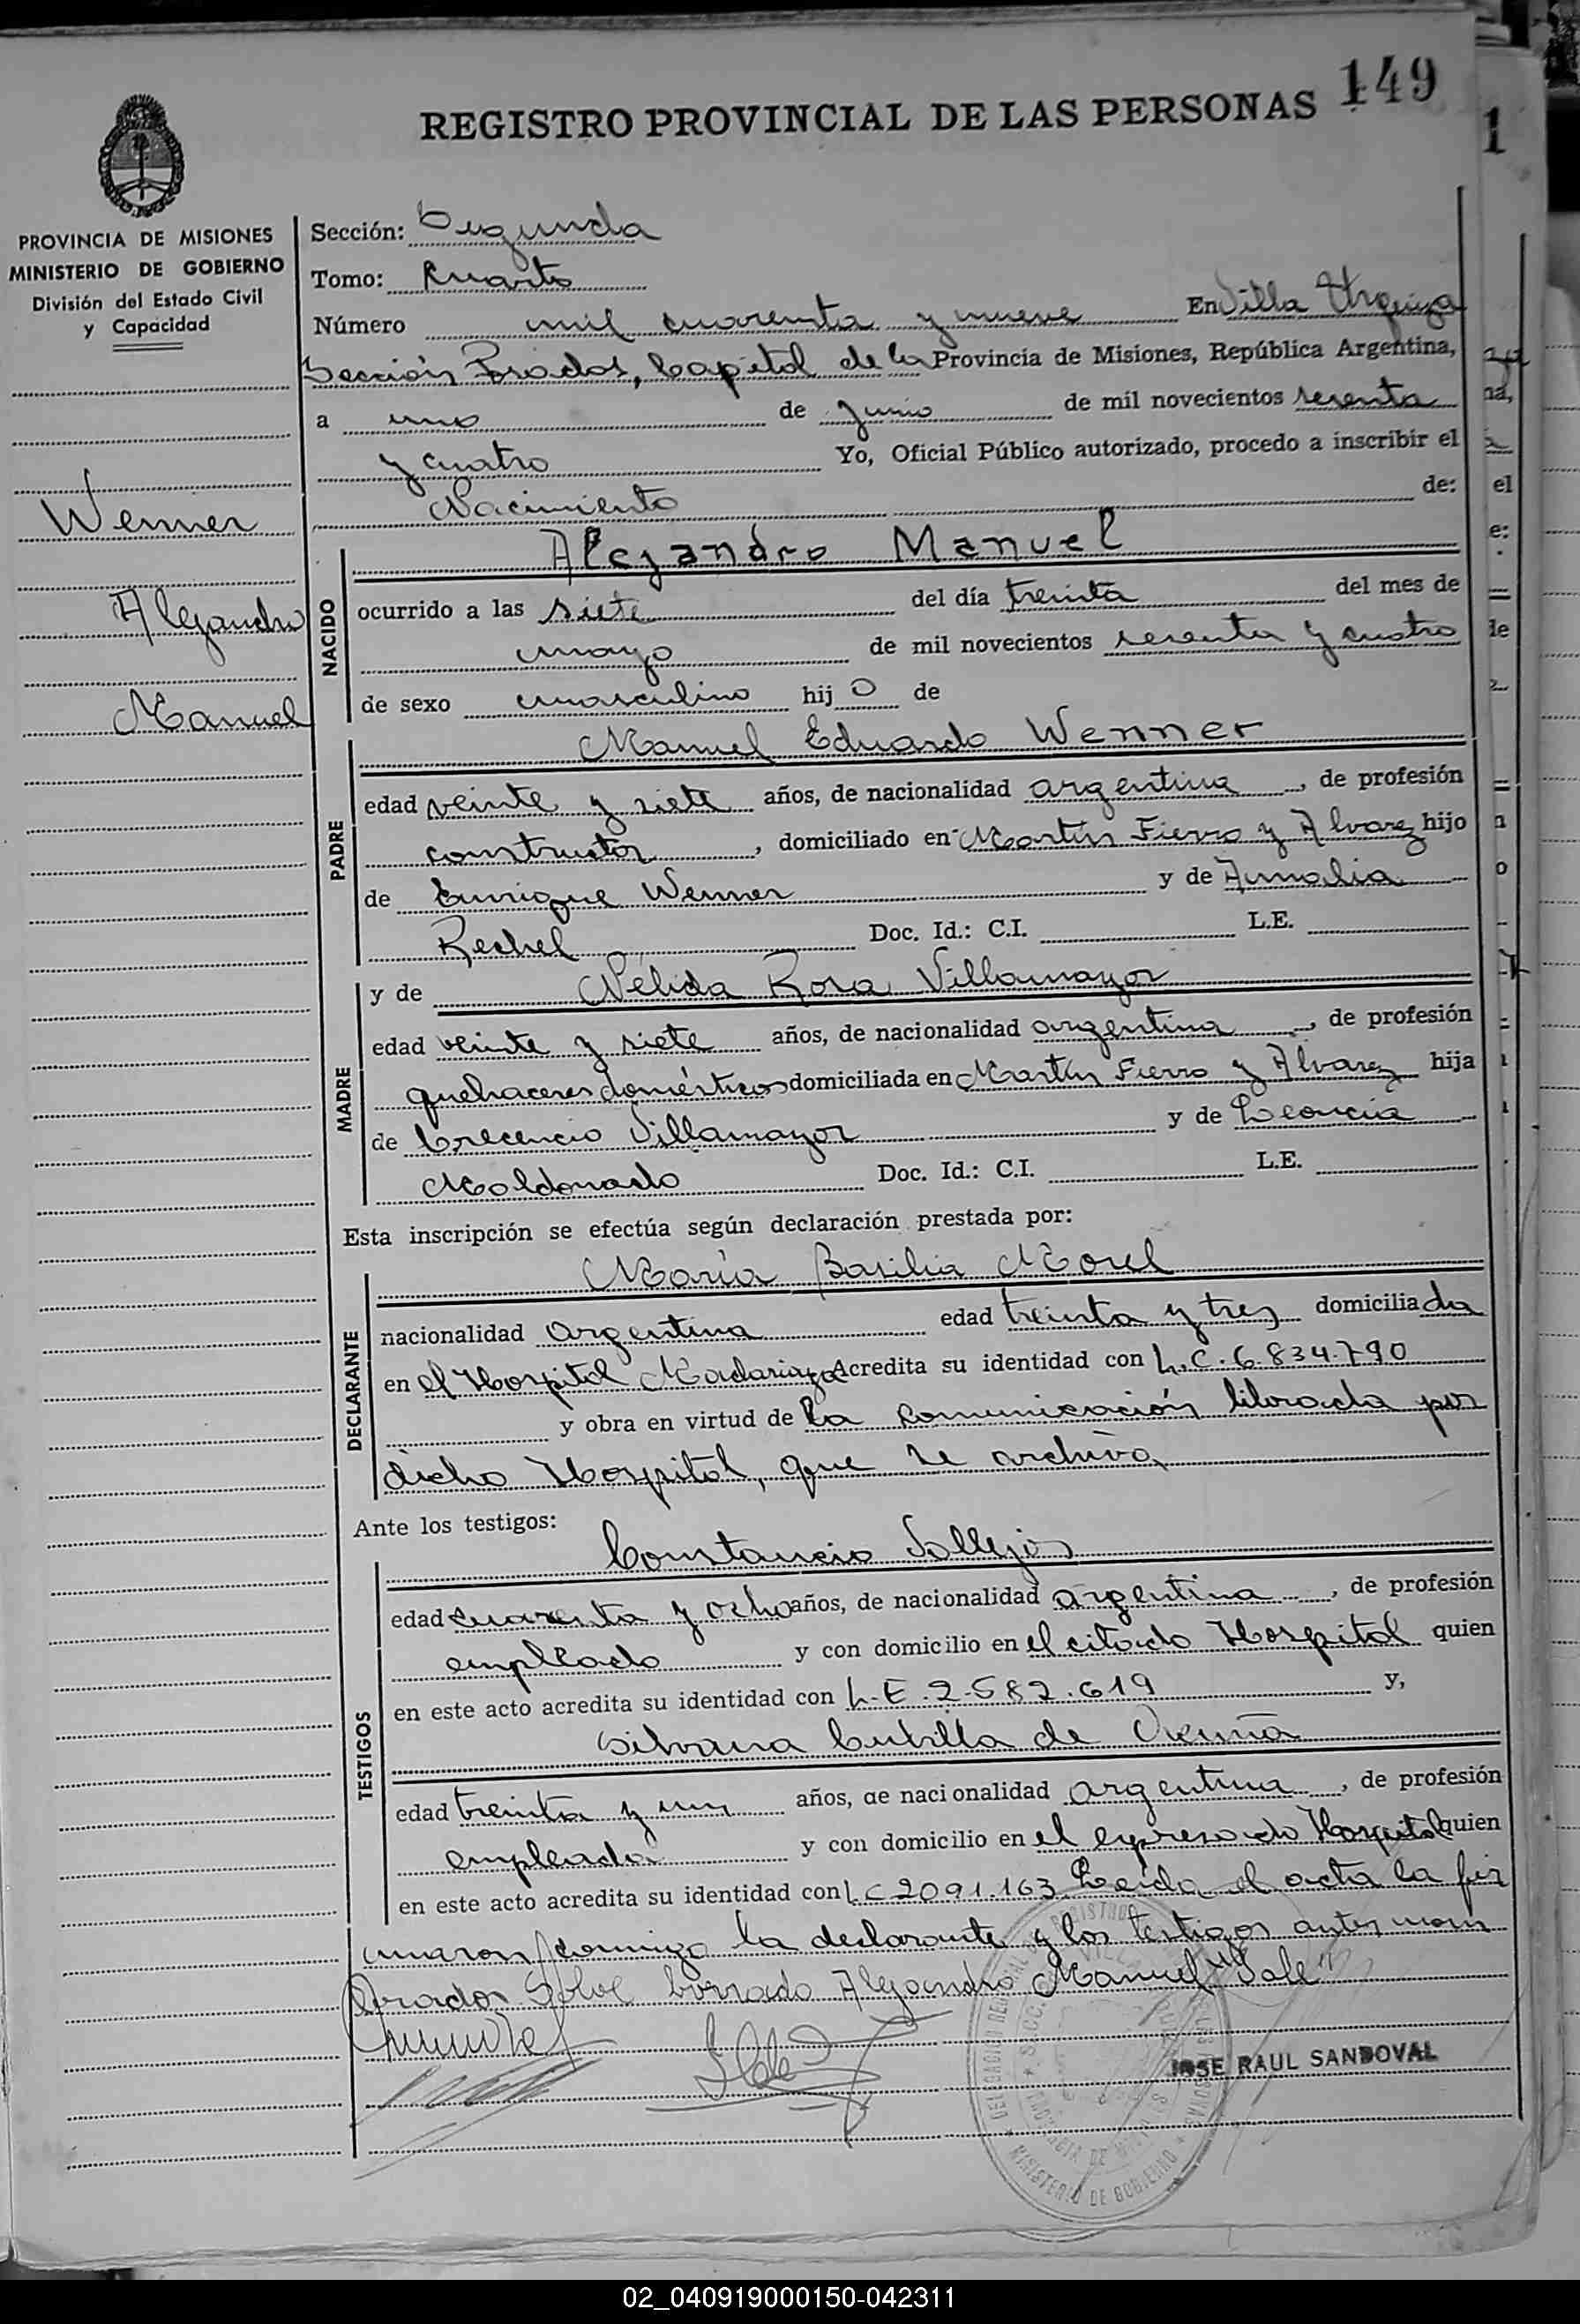 149
REGISTRO PROVINCIAL DE LAS PERSONAS
1
PROVINCIA DE MISIONES
MINISTERIO DE GOBIERNO
División del Estado Civil
y Capacidad
Wenner
Alejandro
Manuel
Sección: Segunda
Tomo: Cuarto
Número mil cuarenta y nueve En Villa Urquiza
Sección Posadas, Capital de la Provincia de Misiones, República Argentina,
a uno de junio de mil novecientos sesenta
y cuatro Yo, Oficial Público autorizado, procedo a inscribir el
Nacimiento de:
NACIDO
Alejandro Manuel
ocurrido a las siete del día treinta del mes de
mayo de mil novecientos sesenta y cuatro
de sexo masculino hijo de
PADRE
Manuel Eduardo Wenner
edad veinte y siete años, de nacionalidad argentina, de profesión
constructor, domiciliado en Martín Fierro y Alvarez hijo
de Enrique Wenner y de Amalia
Rechel Doc. Id.: C.I. L.E.
MADRE
y de Nélida Rosa Villamayor
edad veinte y siete años, de nacionalidad argentina, de profesión
quehaceres domésticos domiciliada en Martín Fierro y Alvarez hija
de Crecencio Villamayor y de Leoncia
Maldonado Doc. Id.: C.I. L.E.
Esta inscripción se efectúa según declaración prestada por:
DECLARANTE
María Basilia Morel
nacionalidad argentina edad treinta y tres domiciliada
en el Hospital Madariaga Acredita su identidad con L.C. 6.834.790
y obra en virtud de la comunicación librada por
dicho Hospital, que se archiva
Ante los testigos:
TESTIGOS
Constancio Vallejos
edad cuarenta y ocho años, de nacionalidad argentina, de profesión
empleado y con domicilio en el citado Hospital quien
en este acto acredita su identidad con L.E. 2.582.619 y,
Silvana Cubilla de Acuña
edad treinta y un años, de nacionalidad argentina, de profesión
empleada y con domicilio en el expresado Hospital quien
en este acto acredita su identidad con L.C 2091.163 Leída el acta la fir
maron conmigo la declarante y los testigos antes nom
brados. Salve borrado Alejandro Manuel "Vale"
JOSE RAUL SANDOVAL
MINISTERIO DE GOBIERNO
02_040919000150-042311